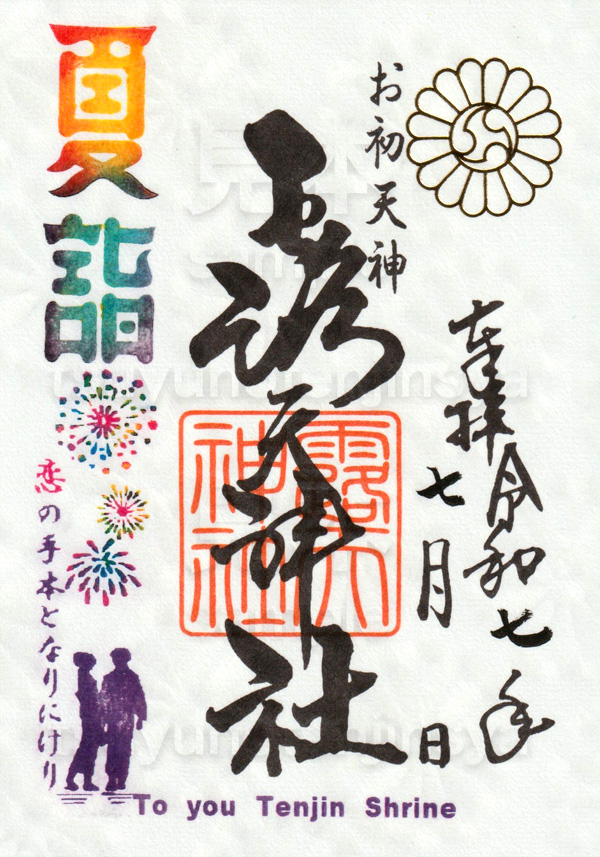 奉拝 令和七年
七月 日
お初天神
露天神社
露天
神社
夏詣
恋の手本となりにけり
To you Tenjin Shrine
見本